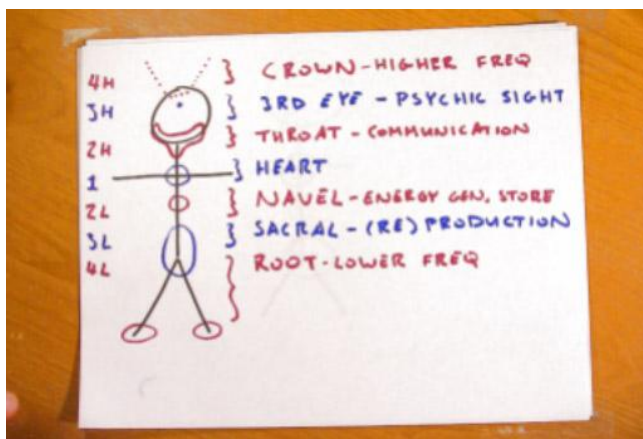 4H } CROWN-HIGHER FREQ
3H } 3RD EYE - PSYCHIC SIGHT
2H } THROAT - COMMUNICATION
1 } HEART
2L } NAVEL-ENERGY GEN, STORE
3L } SACRAL-(RE)PRODUCTION
4L } ROOT-LOWER FREQ